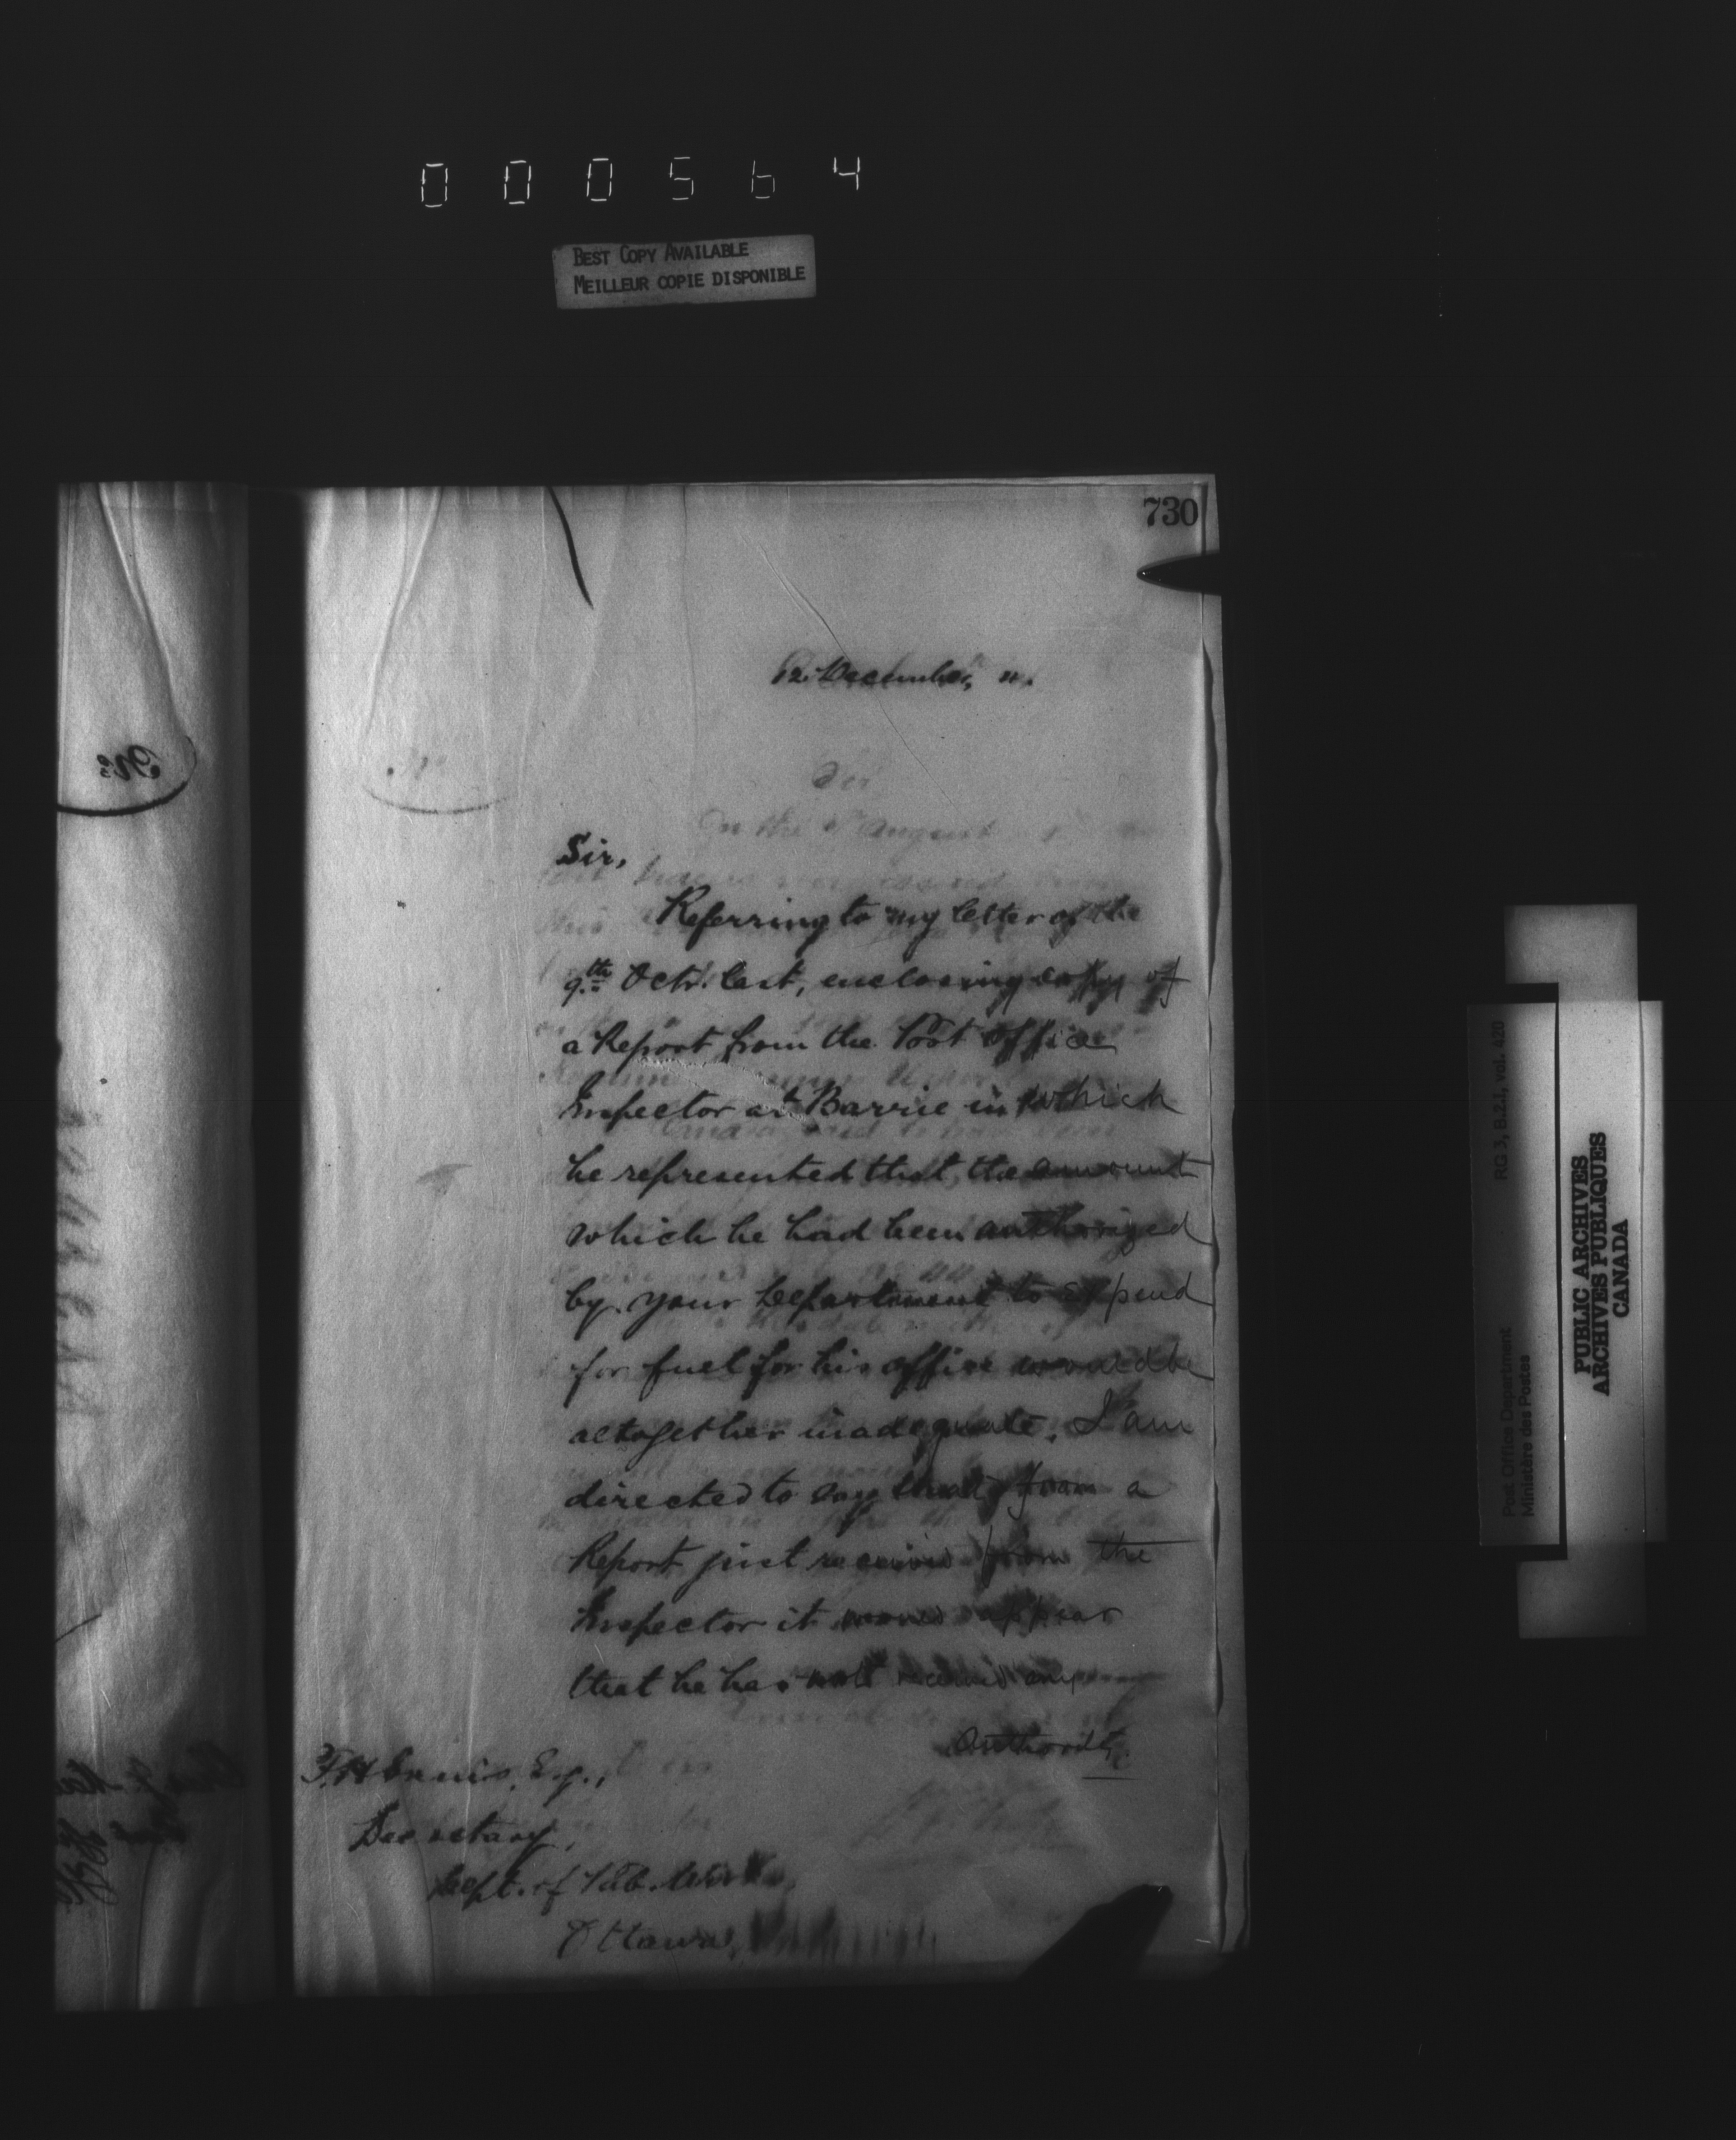 000564
BEST COPY AVAILABLE
MEILLEUR COPIE DISPONIBLE
730
12 December,
Sir,
Referring to my letter of the
9th Octr. last, enclosing copy of
a Report from the Post Office
Inspector at Barrie in which
he represented that the amount
which he had been authorized
by your Department to expend
for fuel for his office would be
altogether inadequate, I am
directed to say that from a
Report just received from the
Inspector it would appear
that he has not received any
Authority
F. H. Ennis, Esq.,
Secretary,
Dept. of Pub. Works,
Ottawa,
RG 3, B.2.1, vol. 420
Post Office Department
Ministère des Postes
PUBLIC ARCHIVES
ARCHIVES PUBLIQUES
CANADA